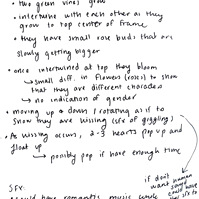 • two green vines grow
• intertwine with each other as they
grow to top center of frame
• they have small rose buds that are
slowly getting bigger
• once intertwined at top they bloom
↳ small diff. in flowers (roses) to show
that they are different characters
↳ no indication of gender
• moving up & down / rotating as if to
show they are kissing (sfx of giggling)
• As kissing occurs, 2-3 hearts pop up and
float up
↳ possibly pop if have enough time
if don't
want human
sound
could have
sfx to
SFX:
could have romantic music